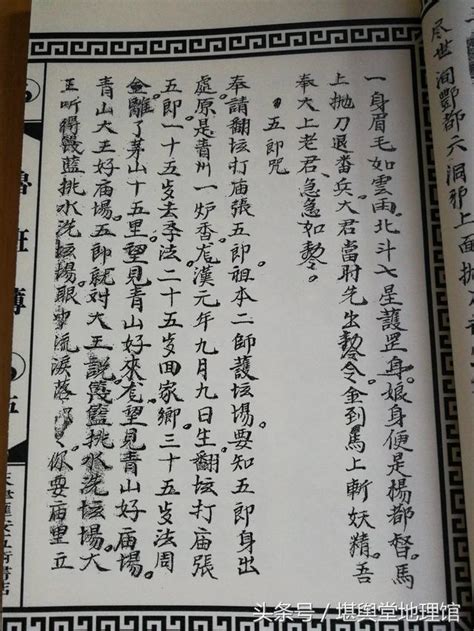 尽世间酆都六洞邪上面抛
一身眉毛如雲雨。北斗七星護罡身。娘身便是楊都督。馬
上抛刀退番兵。大君當时先生勅令。令金到馬上斬妖精。吾
奉太上老君、急急如勅令。
五郎咒
奉請翻坛打庙張五郎。祖本二師護坛場。要知五郎身出
處。原是青州一炉香。漢元年九月九日生翻坛打庙張
五郎一十五歲去李法二十五歲回家鄉三十五歲法周
金。離了茅山十五里。望見青山好來龙。望見青山好庙場。
青山大王好庙場。五郎就对大王說。籃挑水洗坛場。大
王听得籃挑水洗坛場。眼中流淚落 你要庙里立
魯班
五
头条号 / 堪舆堂地理馆